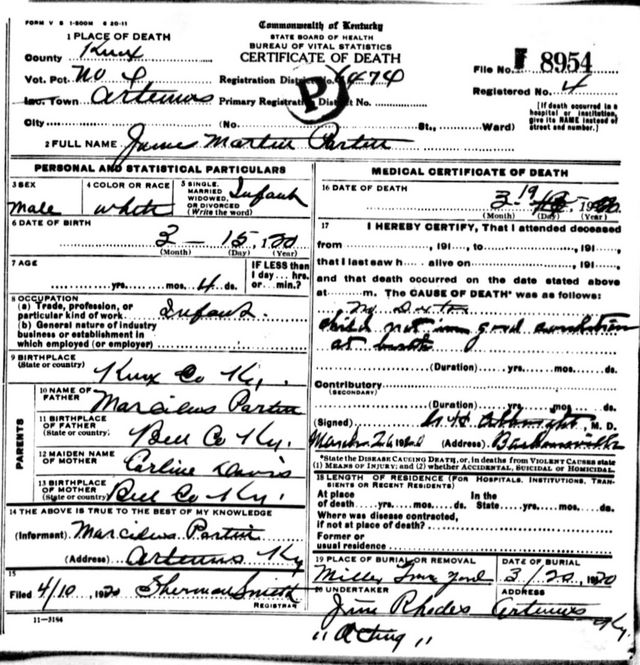 FORM V S 1-500M 6 20-11
Commonwealth of Kentucky
STATE BOARD OF HEALTH
BUREAU OF VITAL STATISTICS
CERTIFICATE OF DEATH
1 PLACE OF DEATH
County Knox
Vot. Pct. No 4
Inc. Town Artemus
City (No. St., Ward)
Registration District No. 474
Primary Registration District No.
P
File No. 8954
Registered No. 4
[If death occurred in a hospital or institution, give its NAME instead of street and number.]
2 FULL NAME James Martin Partin
PERSONAL AND STATISTICAL PARTICULARS
3 SEX
Male
4 COLOR OR RACE
white
5 SINGLE, MARRIED WIDOWED, OR DIVORCED (Write the word)
Infant
6 DATE OF BIRTH
3 - 15, 1920
(Month) (Day) (Year)
7 AGE
yrs. mos. 4 ds.
IF LESS than 1 day ... hrs. or min.?
8 OCCUPATION
(a) Trade, profession, or particular kind of work Infant.
(b) General nature of industry business or establishment in which employed (or employer)
9 BIRTHPLACE
(State or country)
Knox Co Ky.
PARENTS
10 NAME OF FATHER
Marcilus Partin
11 BIRTHPLACE OF FATHER
(State or country)
Bell Co Ky.
12 MAIDEN NAME OF MOTHER
Carline Davis
13 BIRTHPLACE OF MOTHER
(State or country)
Bell Co Ky.
14 THE ABOVE IS TRUE TO THE BEST OF MY KNOWLEDGE
(Informant) Marcilus Partin
(Address) Artemus Ky
15
Filed 4/10, 1920 Sherman Smith
REGISTRAR
11-3184
MEDICAL CERTIFICATE OF DEATH
16 DATE OF DEATH
3 - 19
(Month) (Day) (Year)
17 I HEREBY CERTIFY, That I attended deceased
from , 191 , to , 191 ,
that I last saw h alive on , 191 ,
and that death occurred on the date stated above
at m. The CAUSE OF DEATH* was as follows:
child not in good condition
at birth
(Duration) yrs. mos. ds.
Contributory
(SECONDARY)
(Duration) yrs. mos. ds.
(Signed) M. D.
March 26 1920 (Address) Barbourville
*State the DISEASE CAUSING DEATH, or, in deaths from VIOLENT CAUSES state
(1) MEANS OF INJURY; and (2) whether ACCIDENTAL, SUICIDAL OR HOMICIDAL.
18 LENGTH OF RESIDENCE (FOR HOSPITALS, INSTITUTIONS, TRANSIENTS OR RECENT RESIDENTS)
At place of death yrs. mos. ds. In the State yrs. mos. ds.
Where was disease contracted,
if not at place of death?
Former or
usual residence
19 PLACE OF BURIAL OR REMOVAL
Miller Grave Yard
DATE OF BURIAL
3/20, 1920
20 UNDERTAKER
Jim Rhodes
ADDRESS
Artemus Ky.
"Acting"